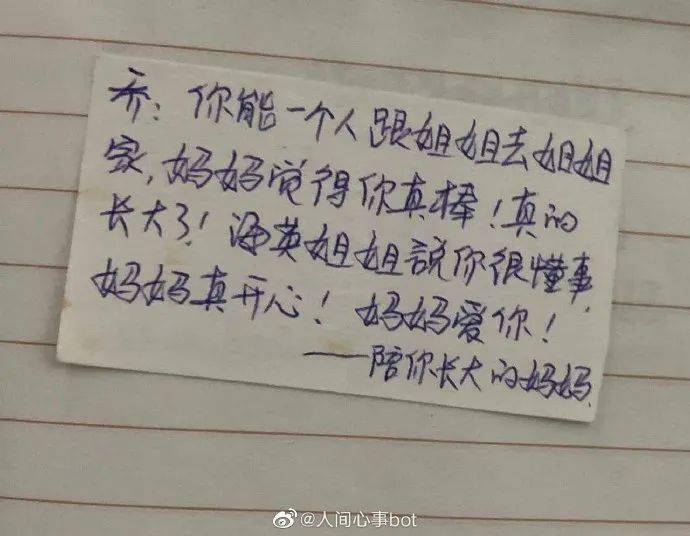 乔：你能一个人跟姐姐去姐姐
家，妈妈觉得你真棒！真的
长大了！海英姐姐説你很懂事，
妈妈真开心！妈妈爱你！
——陪你长大的妈妈
@人间心事bot